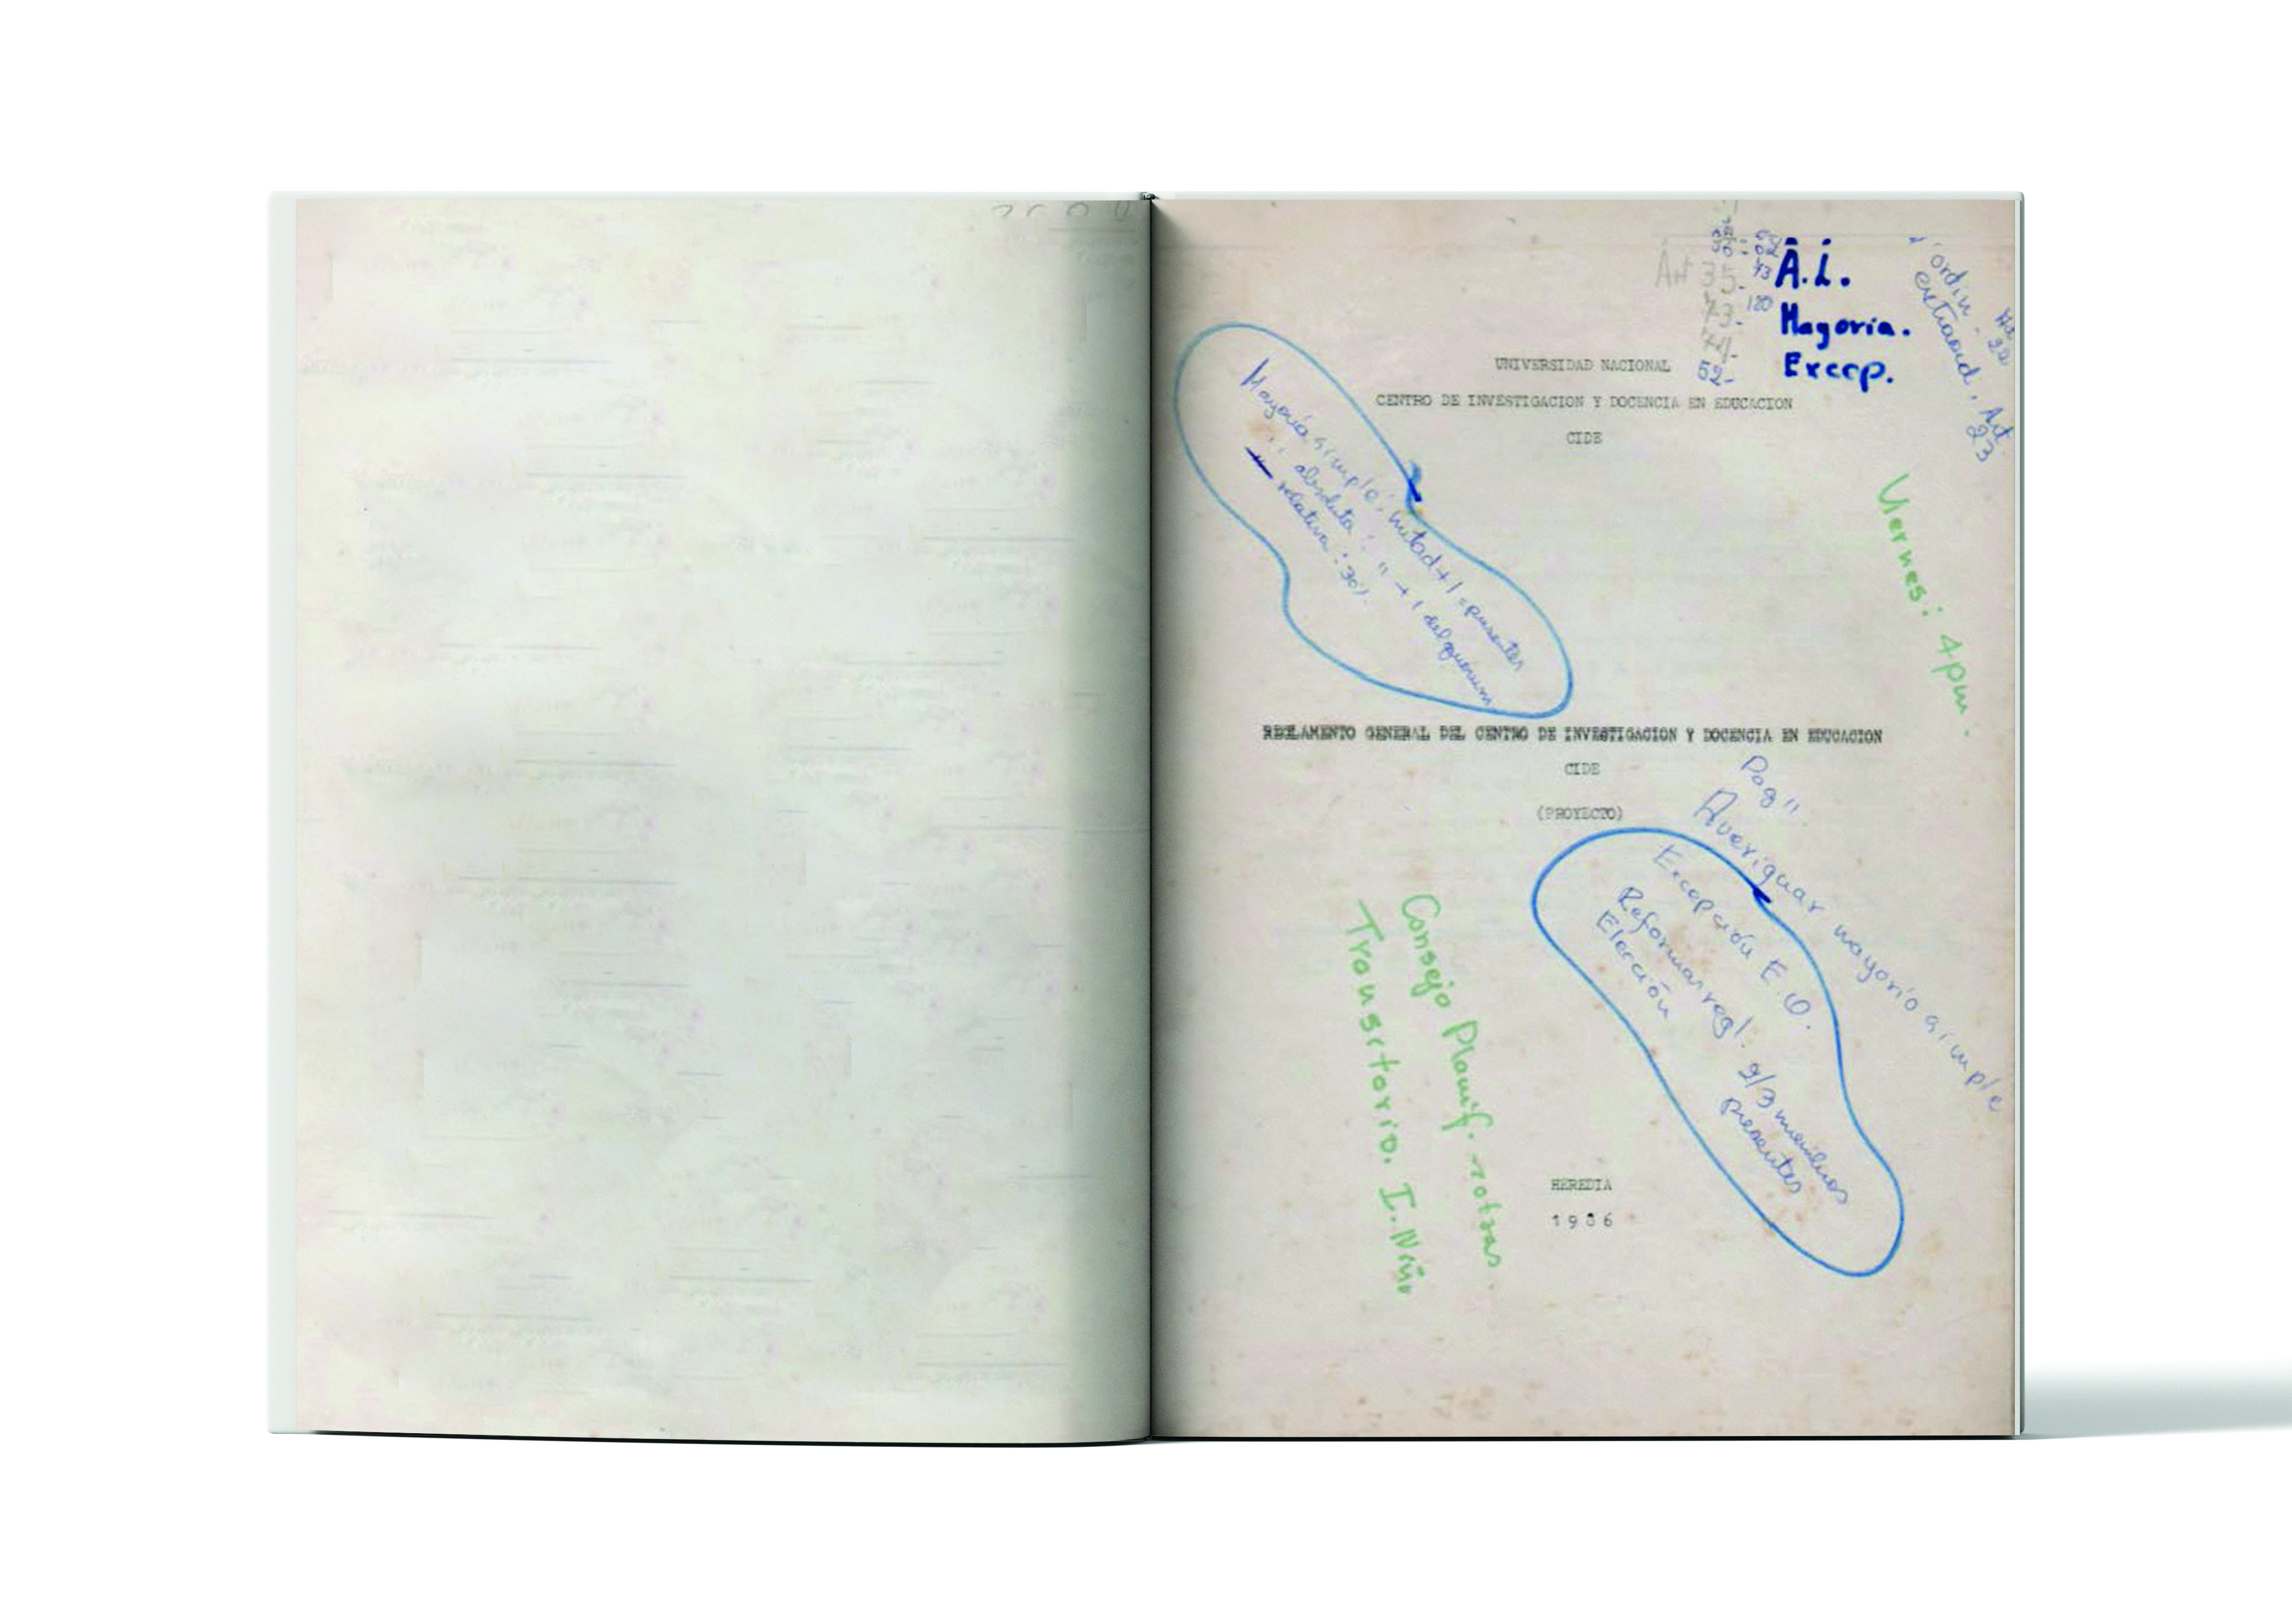 Art 35-
73-
74-
52-
43
120
A.L.
Mayoria.
Excep.
ordin.
extraord, Art.
23
UNIVERSIDAD NACIONAL
CENTRO DE INVESTIGACION Y DOCENCIA EN EDUCACION
CIDE
Mayoría simple: mitad + 1 = presentes
" absoluta: " + 1 del quórum
" relativa: 30%.
Viernes: 4pm.
REGLAMENTO GENERAL DEL CENTRO DE INVESTIGACION Y DOCENCIA EN EDUCACION
CIDE
(PROYECTO)
Pag 11.
Averiguar mayoría simple
Excepción E.
Reformar regl. 2/3 miembros
presentes
Elección
Consejo Planif.
Transitorio. I.
HEREDIA
1986